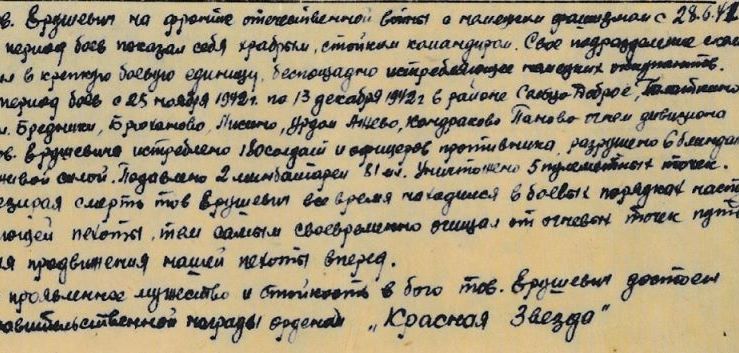 ов. Ерушевич на фронте отечественной войны с немецким фашизмом с 28.6.42
период боев показал себя храбрым, стойким командиром. Свое подразделение скол
ил в крепкую боевую единицу, беспощадно истребляющее немецких оккупантов.
период боев с 25 ноября 1942г. по 13 декабря 1942г в районе Сельцо Доброе,
Бредники, Брюханово, Лисино, Урдом Ажево, Кондраково Паново огнем дивизиона
ов. Ерушевича истреблено 180 солдат и офицеров противника, разрушено 6 блиндаж
живой силой. Подавлено 2 минбатареи 81 мм. Уничтожено 5 пулеметных точек.
езирая смерть тов Ерушевич все время находился в боевых порядках наст
ующей пехоты, тем самым своевременно очищал от огневых точек путь
ля продвижения нашей пехоты вперед.
проявленное мужество и стойкость в бою тов. Ерушевич достоен
равительственной награды орденом „Красная Звезда"